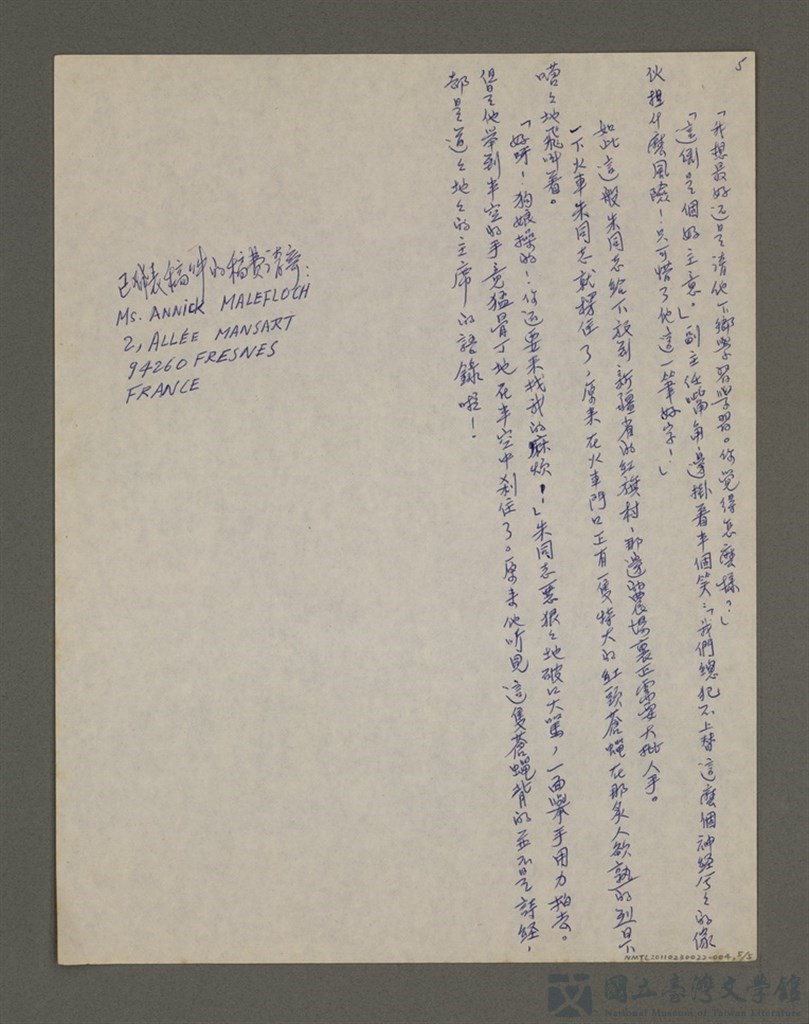 5
「我想最好还是请他下鄉学習學習。你覺得怎麼樣？」
「這倒是個好主意。」副主任嘴角邊掛着半個笑：「我們總犯不上替這麼個神經兮々的傢
伙担什麼風險！只可惜了他這一筆好字！」
如此這般朱同志給下放到新疆省的紅旗村，那邊的農場裏正需要大批人手。
一下火車朱同志就楞住了，原来在火車門口正有一隻特大的紅頭蒼蝇在那炙人欲熟的烈日下
嘈々地飛叫着。
「好呀！狗娘操的！你还要来找我的麻烦！」朱同志惡狠々地破口大駡，一面舉手用力拍去。
但是他举到半空的手竟猛骨丁地在半空中刹住了。原来他听見這隻蒼蝇背的並不是詩経，
都是道々地々的主席的語錄啦！
已發表稿件的稿費請寄：
MS. ANNICK MALEFLOCH
2, ALLÉE MANSART
94260 FRESNES
FRANCE
NMTL20110230022-004, 5/5
國立臺灣文學館
National Museum of Taiwan Literature